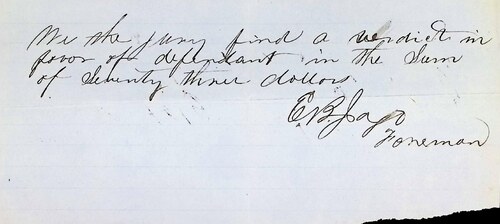 We the jury find a verdict in
favor of defendant in the Sum
of Seventy three dollars
E. B. Jago
Foreman